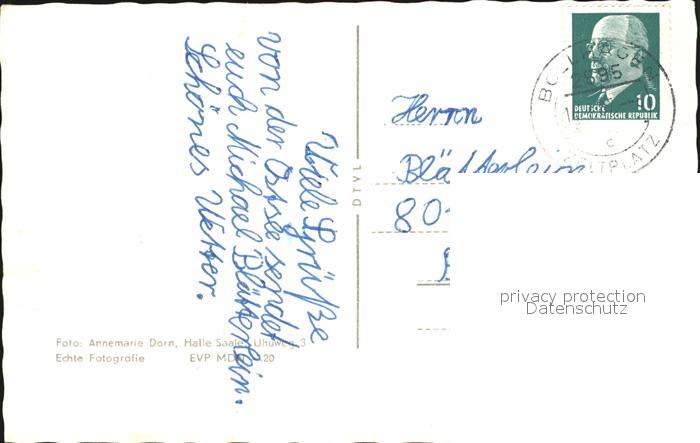 Viele Grüße
von der Ostsee sendet
euch Michael Blätterlein.
Schönes Wetter.
DTVL
Foto: Annemarie Dorn, Halle Saale, Uhuweg 3
Echte Fotografie EVP MDN
20
DEUTSCHE
DEMOKRATISCHE REPUBLIK
10
2695
c
ZELTPLATZ
Herrn
Blätterlein
80
privacy protection
Datenschutz